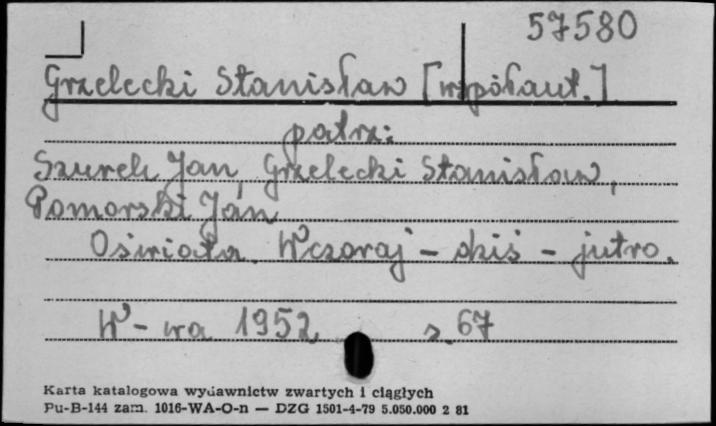 57580
Grzelecki Stanisław [współaut.]
patrz:
Szurek Jan, Grzelecki Stanisław,
Pomorski Jan
Oświata. Wczoraj - dziś - jutro.
W-wa 1952 s. 67
Karta katalogowa wydawnictw zwartych i ciągłych
Pu-B-144 zam. 1016-WA-O-n — DZG 1501-4-79 5.050.000 2 81